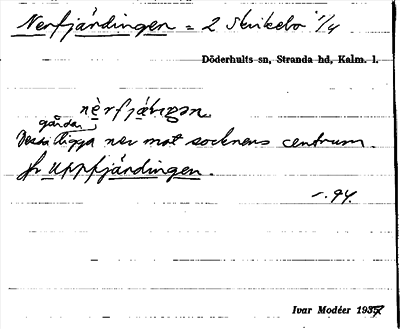 Nerfjärdingen = 2 Skikebo 1/4
Döderhults sn, Stranda hd, Kalm. l.
gårdar
Dessa ligga ner mot socknens centrum.
Jfr Uppfjärdingen.
–.94.
Ivar Modéer 1935